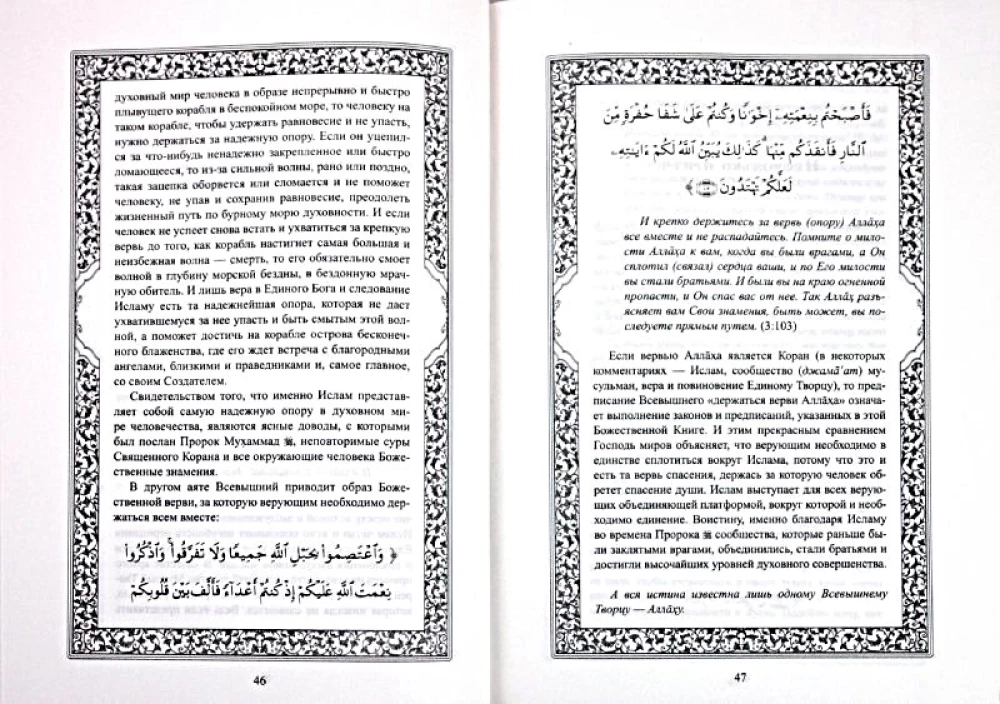 духовный мир человека в образе непрерывно и быстро
плывущего корабля в беспокойном море, то человеку на
таком корабле, чтобы удержать равновесие и не упасть,
нужно держаться за надежную опору. Если он уцепил-
ся за что-нибудь ненадежно закрепленное или быстро
ломающееся, то из-за сильной волны, рано или поздно,
такая зацепка оборвется или сломается и не поможет
человеку, не упав и сохранив равновесие, преодолеть
жизненный путь по бурному морю духовности. И если
человек не успеет снова встать и ухватиться за крепкую
вервь до того, как корабль настигнет самая большая и
неизбежная волна — смерть, то его обязательно смоет
волной в глубину морской бездны, в бездонную мрач-
ную обитель. И лишь вера в Единого Бога и следование
Исламу есть та надежнейшая опора, которая не даст
ухватившемуся за нее упасть и быть смытым этой вол-
ной, а поможет достичь на корабле острова бесконеч-
ного блаженства, где его ждет встреча с благородными
ангелами, близкими и праведниками и, самое главное,
со своим Создателем.
Свидетельством того, что именно Ислам представ-
ляет собой самую надежную опору в духовном ми-
ре человечества, являются ясные доводы, с которыми
был послан Пророк Мухаммад ﷺ, неповторимые суры
Священного Корана и все окружающие человека Боже-
ственные знамения.
В другом аяте Всевышний приводит образ Боже-
ственной верви, за которую верующим необходимо дер-
жаться всем вместе:
﴿ وَٱعْتَصِمُوا۟ بِحَبْلِ ٱللَّهِ جَمِيعًا وَلَا تَفَرَّقُوا۟ وَٱذْكُرُوا۟
نِعْمَتَ ٱللَّهِ عَلَيْكُمْ إِذْ كُنتُمْ أَعْدَآءً فَأَلَّفَ بَيْنَ قُلُوبِكُمْ
46
فَأَصْبَحْتُم بِنِعْمَتِهِۦٓ إِخْوَٰنًا وَكُنتُمْ عَلَىٰ شَفَا حُفْرَةٍ مِّنَ
ٱلنَّارِ فَأَنقَذَكُم مِّنْهَا ۗ كَذَٰلِكَ يُبَيِّنُ ٱللَّهُ لَكُمْ ءَايَـٰتِهِۦ
لَعَلَّكُمْ تَهْتَدُونَ ١٠٣ ﴾
И крепко держитесь за вервь (опору) Аллāҳа
все вместе и не распадайтесь. Помните о мило-
сти Аллāҳа к вам, когда вы были врагами, а Он
сплотил (связал) сердца ваши, и по Его милости
вы стали братьями. И были вы на краю огненной
пропасти, и Он спас вас от нее. Так Аллāҳ разъ-
ясняет вам Свои знамения, быть может, вы по-
следуете прямым путем. (3:103)
Если вервью Аллāҳа является Коран (в некоторых
комментариях — Ислам, сообщество (джамā‘ат) му-
сульман, вера и повиновение Единому Творцу), то пред-
писание Всевышнего «держаться верви Аллāҳа» означа-
ет выполнение законов и предписаний, указанных в этой
Божественной Книге. И этим прекрасным сравнением
Господь миров объясняет, что верующим необходимо в
единстве сплотиться вокруг Ислама, потому что это и
есть та вервь спасения, держась за которую человек об-
ретет спасение души. Ислам выступает для всех верую-
щих объединяющей платформой, вокруг которой и необ-
ходимо единение. Воистину, именно благодаря Исламу
во времена Пророка ﷺ сообщества, которые раньше бы-
ли заклятыми врагами, объединились, стали братьями и
достигли высочайших уровней духовного совершенства.
А вся истина известна лишь одному Всевышнему
Творцу — Аллāҳу.
47